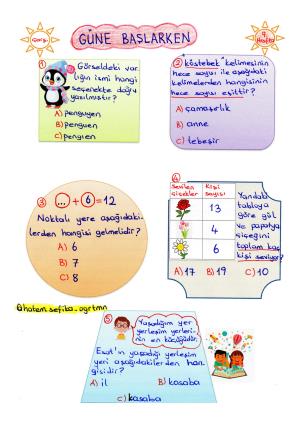 GÜNE BAŞLARKEN
1
Görseldeki var-
lığın ismi hangi
seçenekte doğru
yazılmıştır?
A) penguyen
B) penguen
C) pengıen
2
"köstebek" kelimesinin
hece sayısı ile aşağıdaki
kelimelerden hangisinin
hece sayısı eşittir?
A) çamaşırlık
B) anne
C) tebeşir
3
... + 6 = 12
Noktalı yere aşağıdaki-
lerden hangisi gelmelidir?
A) 6
B) 7
C) 8
4
Sevilen çiçekler
Kişi sayısı
13
4
6
Yandaki
tabloya
göre gül
ve papatya
çiçeğini
toplam kaç
kişi seviyor?
A) 17 B) 19 C) 10
@hatem.sefiba.ogrtmn
5
Yaşadığım yer
yerleşim yerleri-
nin en küçüğüdür.
Esat'ın yaşadığı yerleşim
yeri aşağıdakilerden han-
gisidir?
A) il B) kasaba
C) kasaba